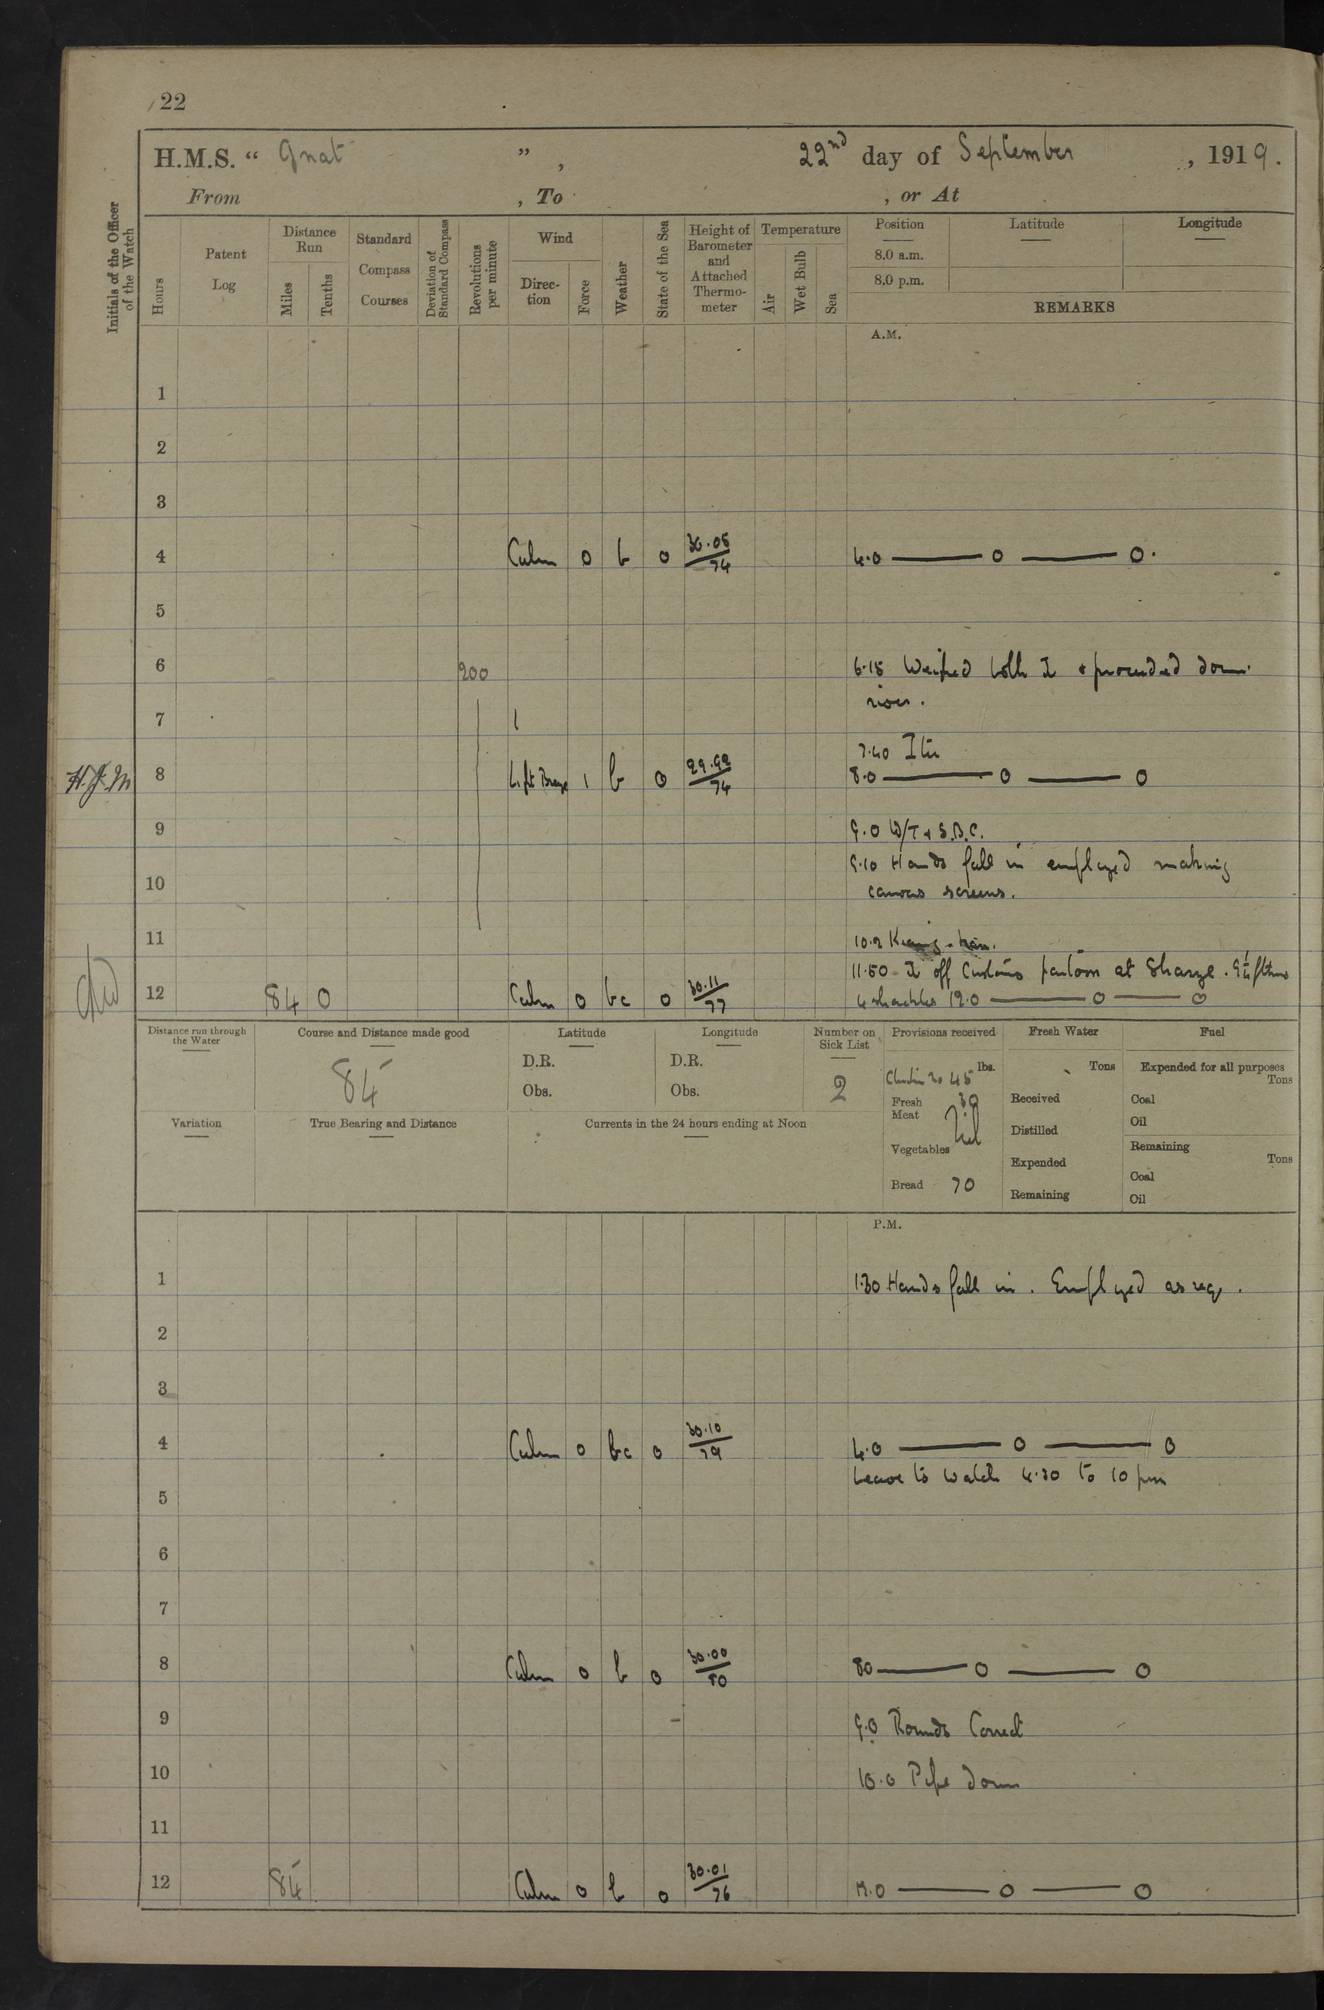 22
H.M.S. “ Gnat ” , 22nd day of September , 1919.
From , To , or At
Initials of the Officer of the Watch
Hours
Patent Log
Distance Run
Miles
Tenths
Standard Compass Courses
Deviation of Standard Compass
Revolutions per minute
Wind
Direction
Force
Weather
State of the Sea
Height of Barometer and Attached Thermometer
Temperature
Air
Wet Bulb
Sea
Position Latitude Longitude
8.0 a.m.
8.0 p.m.
REMARKS
A.M.
1
2
3
4 Calm 0 b 0 30.05/74 4.0 — 0 — 0.
5
6 200 6.15 Weighed both & proceeded down
river.
7
7.40
H.J.M 8 1 b 0 29.99/74 8.0 — 0 — 0
9 9.0 W/T & S.B.C.
9.10 Hands fall in employed making
10 canvas screens.
11 10.2
11.50 off Customs pontoon at
12 84 0 Calm 0 bc 0 30.11/77 4 shackles 12.0 — 0 — 0
Distance run through the Water
Course and Distance made good
84
Latitude
D.R.
Obs.
Longitude
D.R.
Obs.
Number on Sick List
2
Provisions received
lbs.
45
Fresh Meat
Vegetables Nil
Bread 70
Fresh Water
Tons
Received
Distilled
Expended
Remaining
Fuel
Expended for all purposes
Tons
Coal
Oil
Remaining
Tons
Coal
Oil
Variation
True Bearing and Distance
Currents in the 24 hours ending at Noon
P.M.
1 1.30 Hands fall in. Employed as req.
2
3
4 Calm 0 bc 0 30.10/79 4.0 — 0 — 0
Leave to watch 4.30 to 10 pm
5
6
7
8 Calm 0 b 0 30.00/80 80 — 0 — 0
9 9.0 Rounds Correct
10 10.0 Pipe down
11
12 84 Calm 0 b 0 30.01/76 — 0 — 0